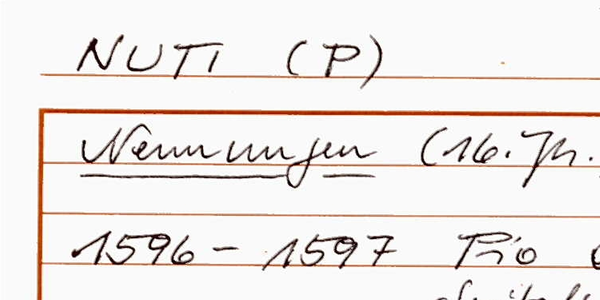 NUTI (P)
Nennungen (16. Jh.
1596 - 1597 Pio